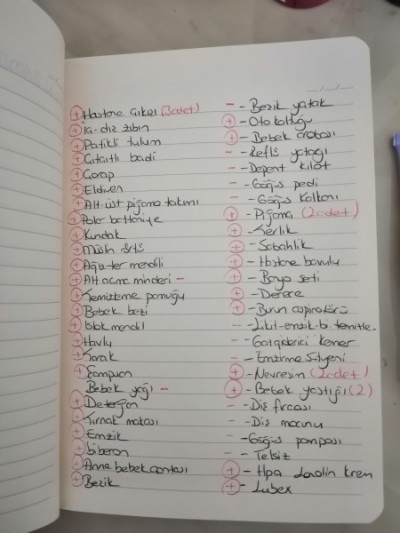 + Hastane çıkışı (3 adet)
+ İç-dış zıbın
+ Patikli tulum
+ Çıtçıtlı badi
+ Çorap
+ Eldiven
+ Alt üst pijama takımı
+ Polar battaniye
+ Kundak
+ Müslin örtü
+ Ağız-ter mendili
+ Alt açma minderi -
+ Temizleme pamuğu
+ Bebek bezi
+ Islak mendil
+ Havlu
+ Tarak
+ Şampuan
Bebek yağı -
+ Deterjan
+ Tırnak makası
+ Emzik
+ Biberon
+ Anne bebek çantası
+ Beşik
- - Beşik yatak
+ - Oto koltuğu
+ - Bebek arabası
- - Reflü yatağı
- - Depent külot
- - Göğüs pedi
- - Göğüs kalkanı
+ - Pijama (2 adet)
+ - Terlik
+ - Sabahlık
+ - Hastane bavulu
+ - Banyo seti
+ - Derece
+ - Burun aspiratörü
- - Likit-emzik-bi temizle.
- - Gaz giderici kemer
- - Emzirme Sütyeni
+ - Nevresim (2 adet)
+ - Bebek yastığı (2)
- - Diş fırçası
- - Diş macunu
- - Göğüs pompası
- - Telsiz
+ - Hpa Lanolin krem
+ -